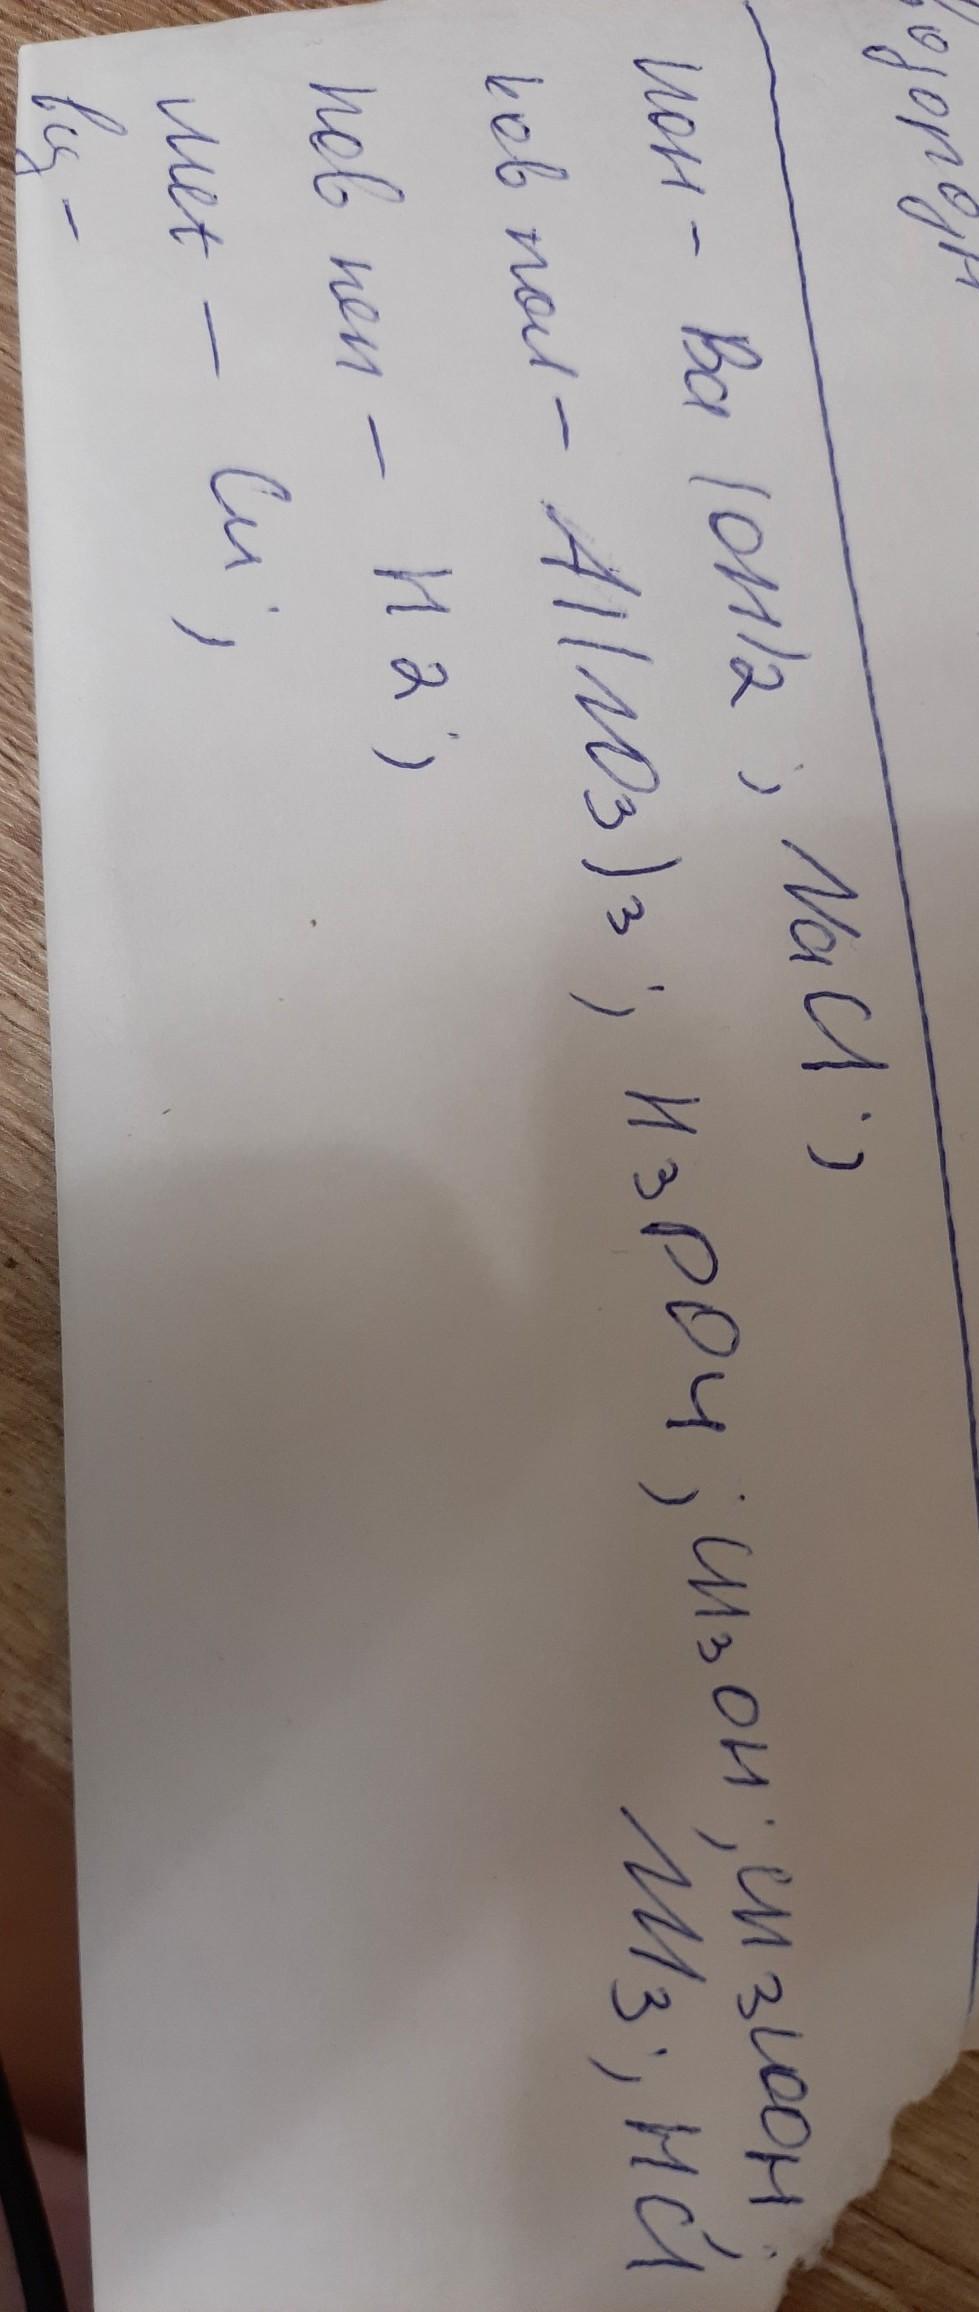 Водородн
ион - Ba(OH)2; NaCl;
ков пол - Al(NO3)3; H3PO4; CH3OH; CH3COOH;
NH3; HCl
ков неп - H2;
мет - Cu;